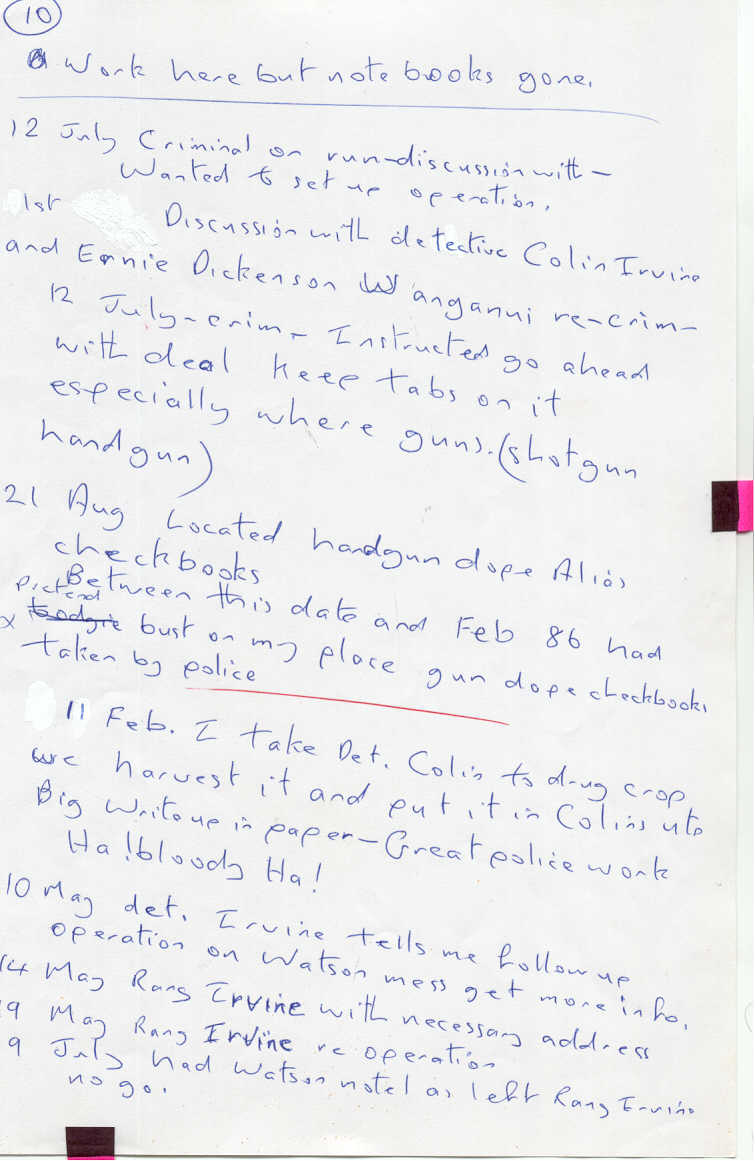 10
Work here but note books gone.
12 July Criminal on run-discussion with-
Wanted to set up operation.
1st Discussion with detective Colin Irvine
and Ernie Dickenson Wanganui re-crim-
12 July-crim- Instructed go ahead
with deal keep tabs on it
especially where guns. (shotgun
handgun)
21 Aug Located handgun dope Alias
checkbooks
Between this date and Feb 86 had
Pretend
x bust on my place gun dope checkbooks
taken by police
11 Feb. I take Det. Colin to drug crop
we harvest it and put it in Colins ute
Big write up in paper-Great police work
Ha! bloody Ha!
10 May det. Irvine tells me follow up
operation on Watson mess get more info.
14 May Rang Irvine with necessary address
19 May Rang Irvine re operation
9 July had Watson note as left Rang Irvine
no go.